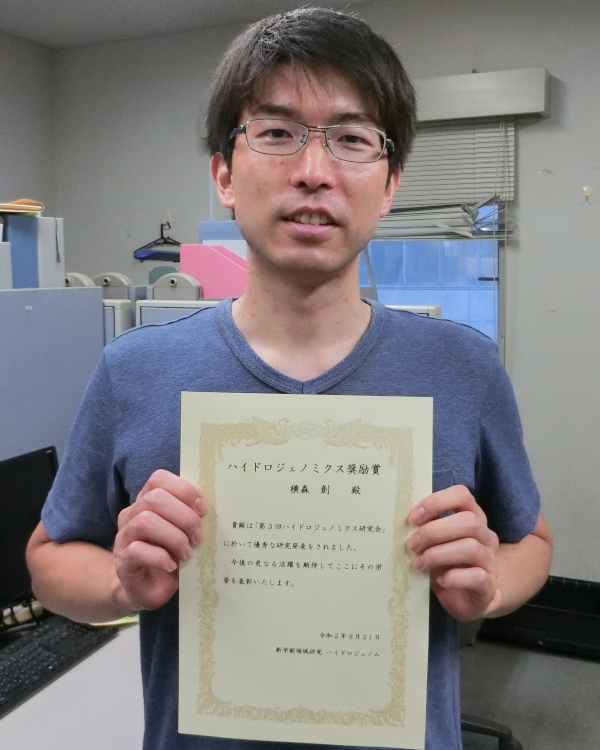 ハイドロジェノミクス奨励賞
横森 創 殿
貴殿は「第３回ハイドロジェノミクス研究会」
に於いて優秀な研究発表をされました。
今後の更なる活躍を期待してここにその栄
誉を表彰いたします。
令和２年８月２１日
新学術領域研究 ハイドロジェノム